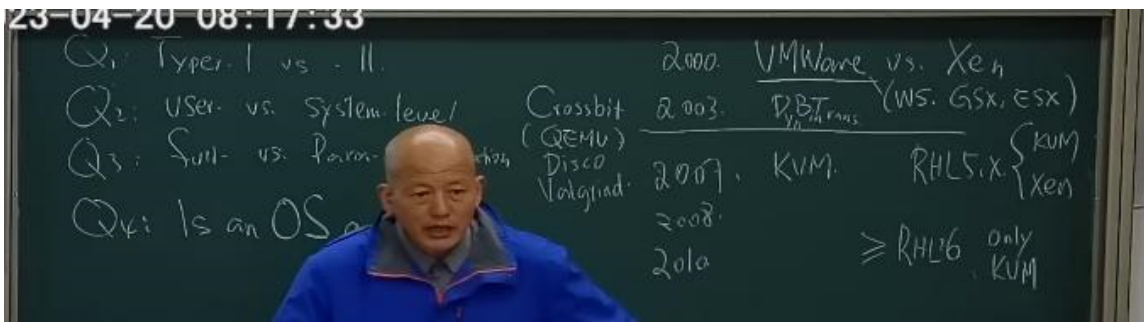 23-04-20 08:17:33
Q1: Type. I vs. II.
Q2: User- vs. System-level
Q3: Full- vs. Para-
Q4: Is an OS a
Crossbit
(QEMU)
Disco
Valgrind.
2000. VMWare vs. Xen
(WS. GSX, ESX)
2003. DBT
2007. KVM. RHL5.x. { KVM
Xen
2008.
2010
≥ RHL6 only
KVM